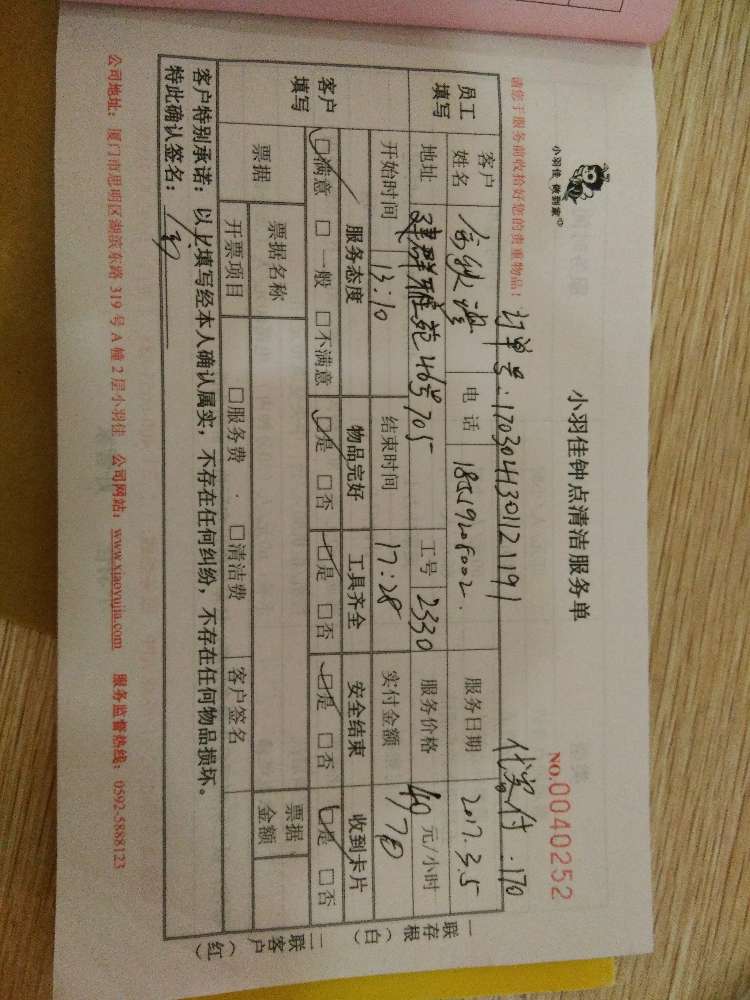 小羽佳 做到家
小羽佳钟点清洁服务单
NO.0040252
请您于服务前收拾好您的贵重物品！
订单号：1703041301121191
付 .170
员工填写 客户姓名 电话 服务日期 2017.3.5
地址 建群雅苑46号705 工号 2330 服务价格 40 元/小时
开始时间 13:10 结束时间 17:28 实付金额 170
客户填写 服务态度 物品完好 工具齐全 安全结束 收到卡片
□满意 □一般 □不满意 □是 □否 □是 □否 □是 □否 □是 □否
票据 票据名称 票据金额
开票项目 □服务费 · □清洁费 客户签名
客户特别承诺：以上填写经本人确认属实，不存在任何纠纷，不存在任何物品损坏。
特此确认签名：
一存根（白）联
二客户（红）联
公司地址：厦门市思明区湖滨东路 319 号 A 幢 2 层小羽佳 公司网站：www.xiaoyujia.com 服务监督热线：0592-5888123